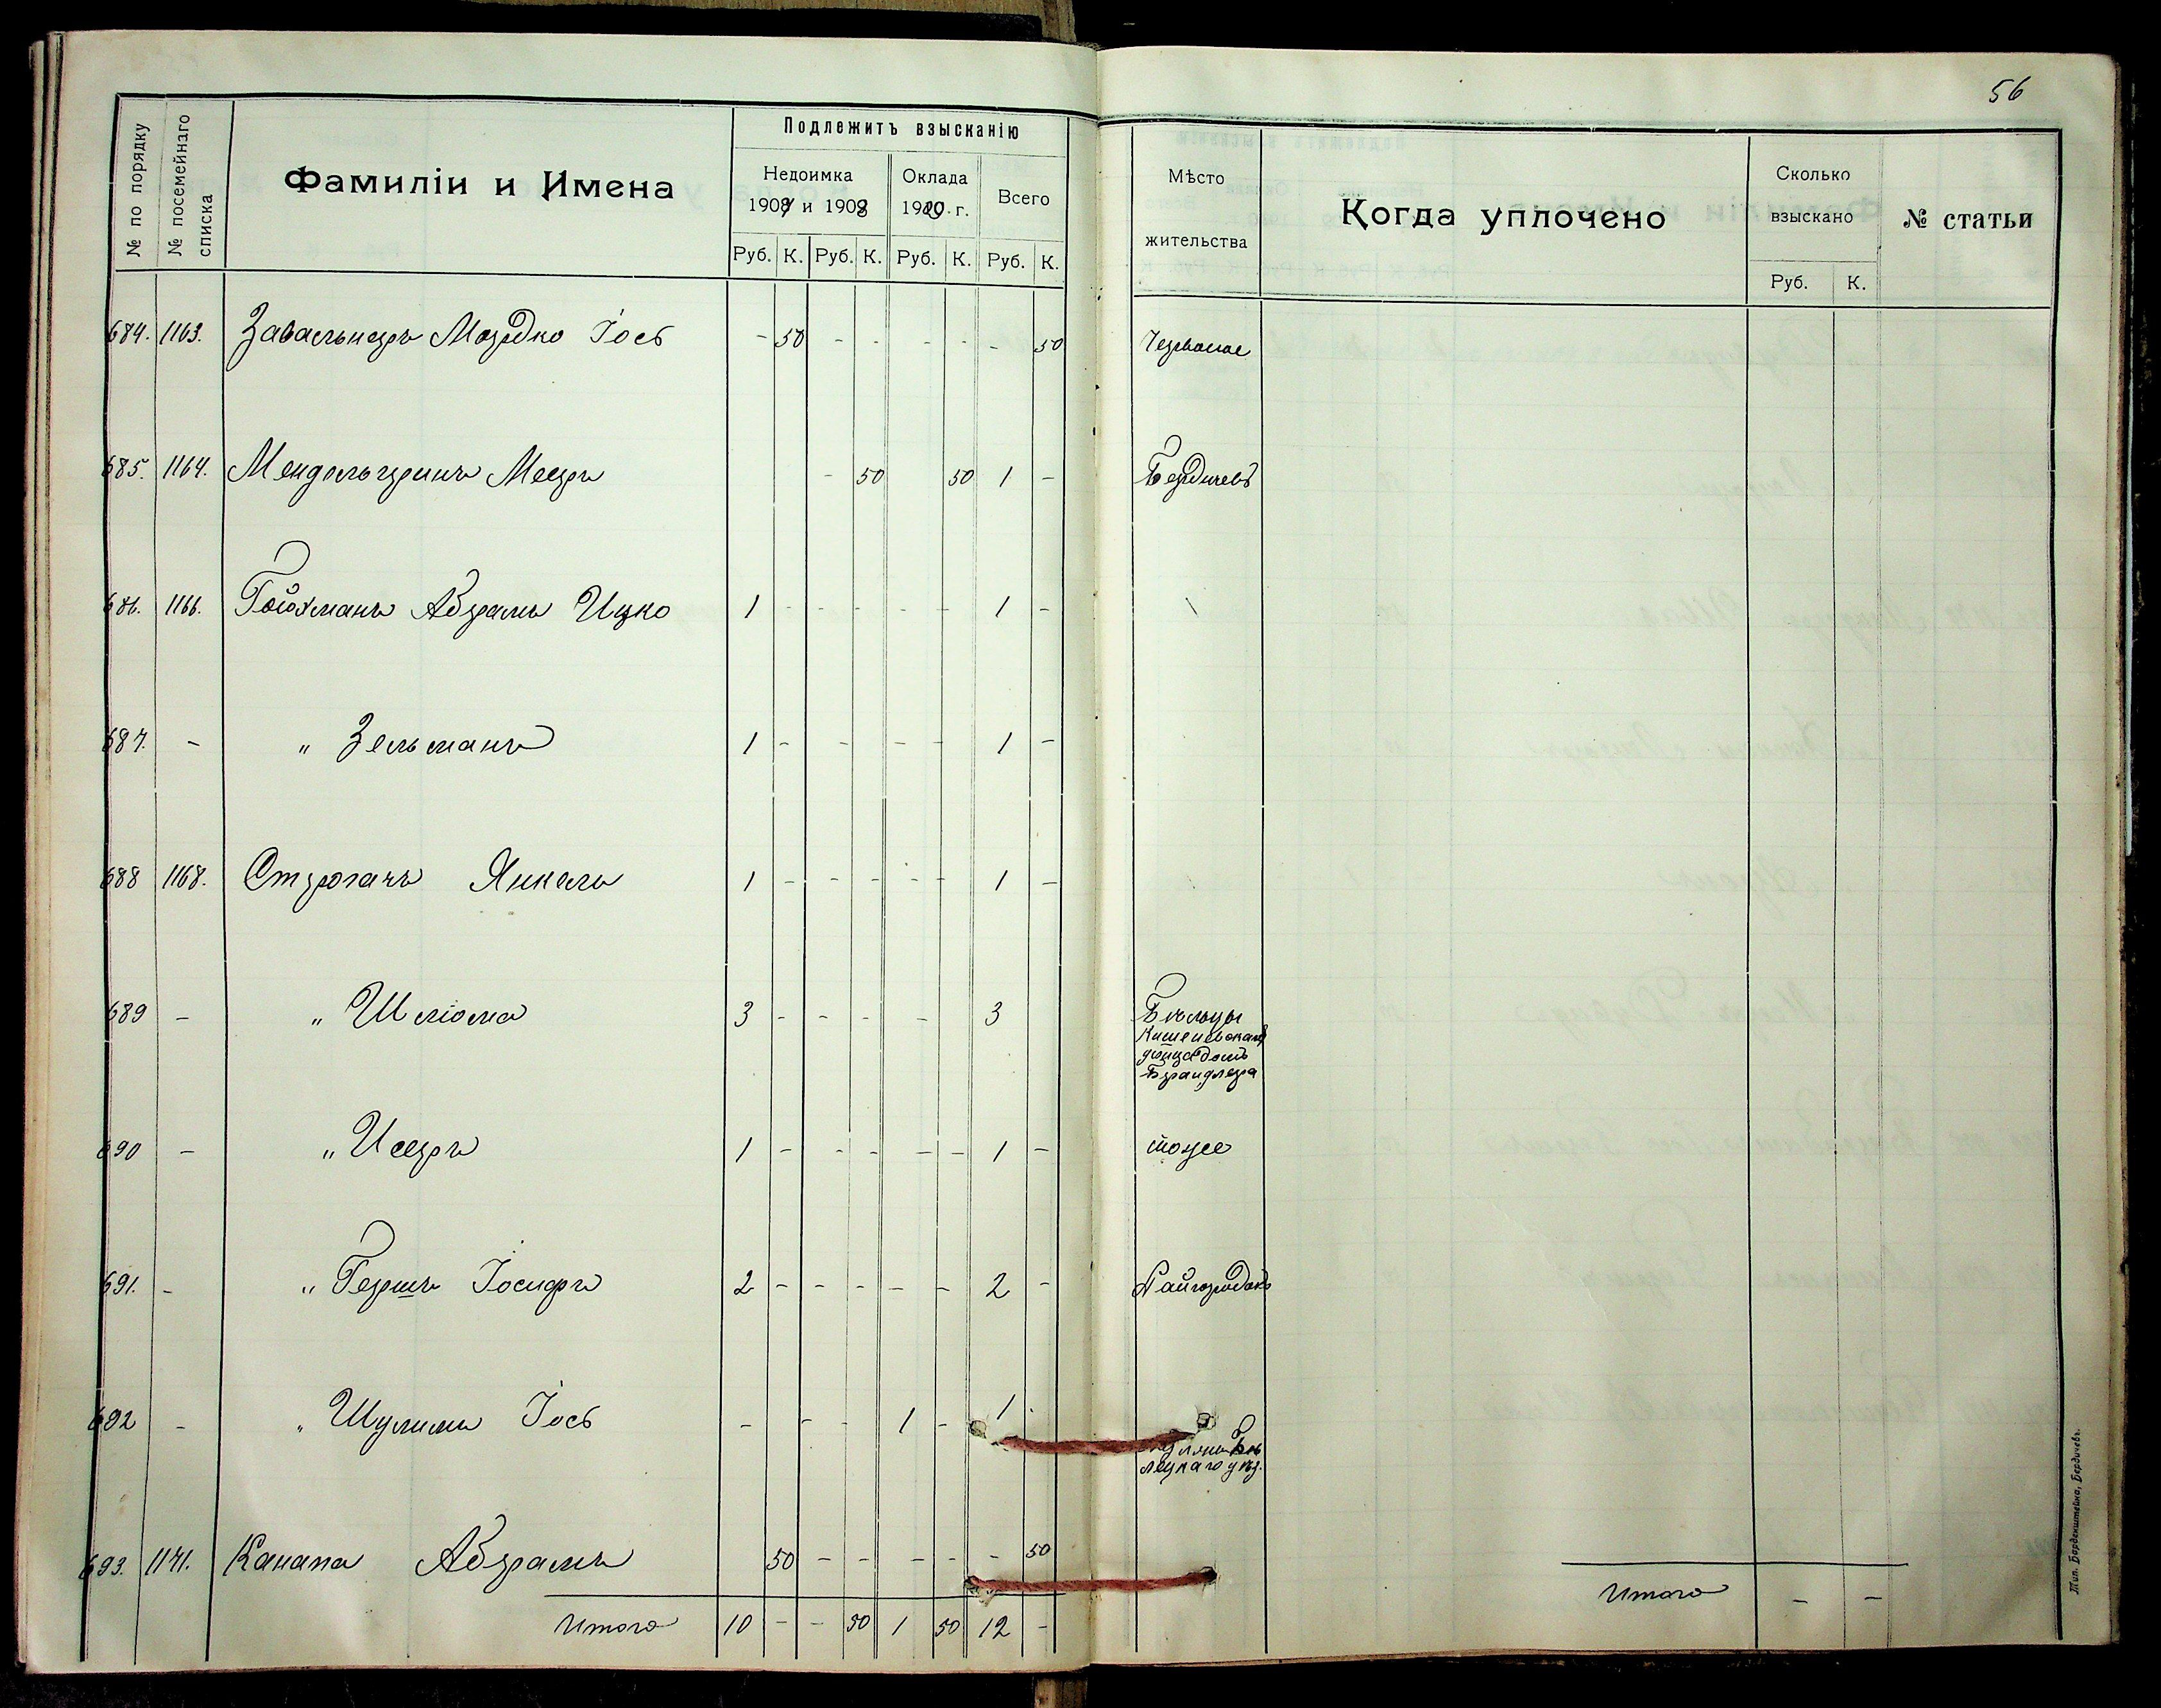 56
№ по порядку
№ посемейнаго списка
Фамиліи и Имена
Подлежитъ взысканію
Недоимка
1907 и 1908
Оклада
1909 г.
Всего
Руб. К. Руб. К. Руб. К. Руб. К.
Мѣсто
жительства
Когда уплочено
Сколько
взыскано
Руб. К.
№ статьи
684. 1163. Завальнеръ Мордко Іось - 50 - - - - - 50 Червоное
685. 1164. Мендельгринъ Мееръ - 50 50 1 - Бердичевъ
686. 1166. Гойхманъ Абрамъ Ицко 1 - - - - - 1 -
687. - " Зельманъ 1 - - - - 1 -
688 1168. Строгачъ Янкель 1 - - - - - 1 -
689 - " Шліома 3 - - - - 3 Бѣльцы
Кишеневская
улица домъ
Брандлера
690 - " Исеръ 1 - - - - - 1 - тоже
691. - " Гершъ Іосифъ 2 - - - - - 2 - Райгородокъ
692 - " Шулимъ Іось - - - 1 - 1 -
Бѣ
лецкаго уѣз.
693. 1171. Капапа Абрамъ 50 - - - - - 50
Итого 10 - - 50 1 50 12 -
Итого - -
Тип. Борденштейна, Бердичевъ.